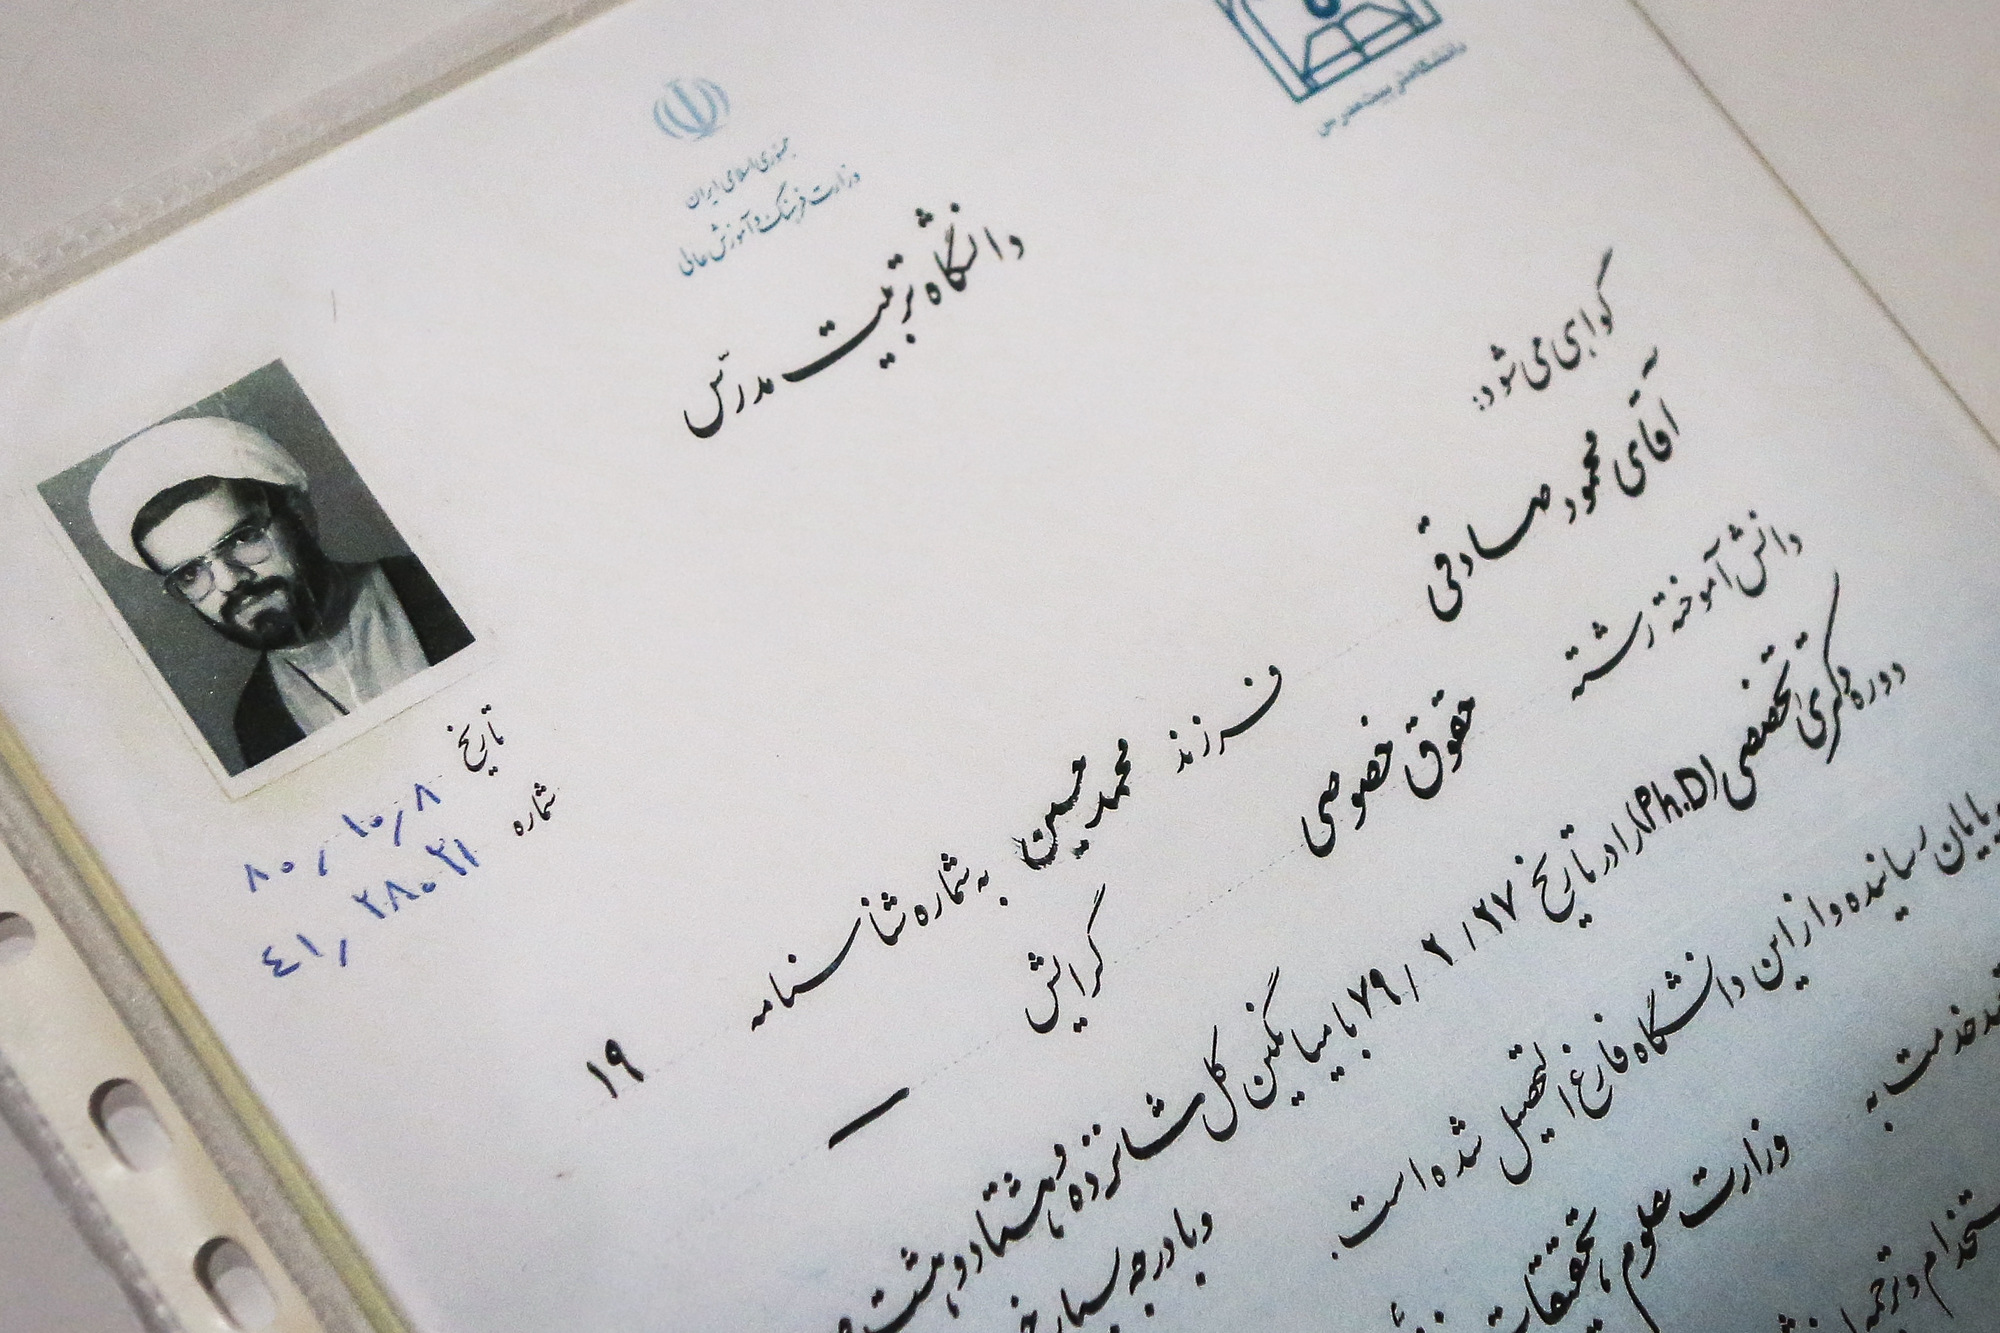 دانشگاه تربیت مدرس
جمهوری اسلامی ایران
وزارت فرهنگ و آموزش عالی
دانشگاه تربیت مدرّس
تاریخ ۸۰/۱۰/۸
شماره ۴۱/۲۸۰۲۱
گواهی می شود:
آقای محمود صادقی فرزند محمدحسین به شماره شناسنامه ۱۹
دانش آموخته رشته حقوق خصوصی گرایش —
دوره دکتری تخصصی (Ph.D) را در تاریخ ۷۹/۲/۲۷ با میانگین کل شانزده و هشتاد و هشت
بپایان رسانیده و از این دانشگاه فارغ التحصیل شده است. و با درجه بسیار
خدمت به وزارت علوم، تحقیقات
استخدام و ترجمه